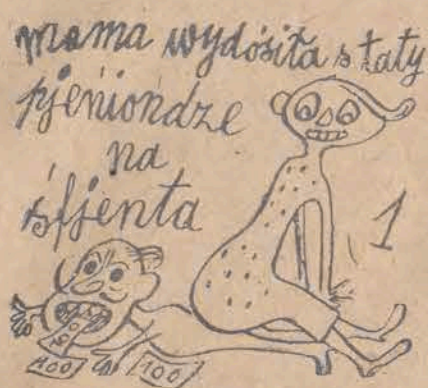 mama wydósiła s taty
pjeniondze
na
śfjenta
1
100
100
100